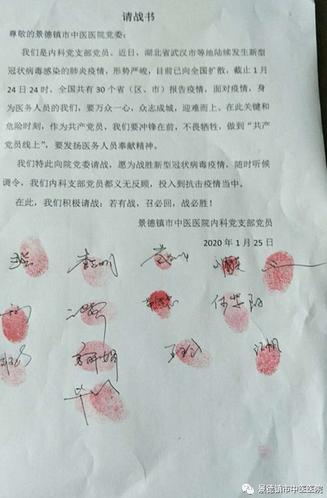 请战书
尊敬的景德镇市中医医院党委：
我们是内科党支部党员。近日，湖北省武汉市等地陆续发生新型
冠状病毒感染的肺炎疫情，形势严峻，目前已向全国扩散，截止1月
24日24时，全国共有30个省（区、市）报告疫情，面对疫情，身
为医务人员的我们，要万众一心，众志成城，迎难而上。在此关键和
危险时刻，作为共产党员，我们要冲锋在前，不畏牺牲，做到“共产
党员线上”，要发扬医务人员奉献精神。
我们特此向院党委请战，愿为战胜新型冠状病毒疫情，随时听候
调令，我们内科支部党员都义无反顾，投入到抗击疫情当中。
在此，我们积极请战，若有战，召必回，战必胜！
景德镇市中医医院内科党支部党员
2020年1月25日
景德镇市中医医院